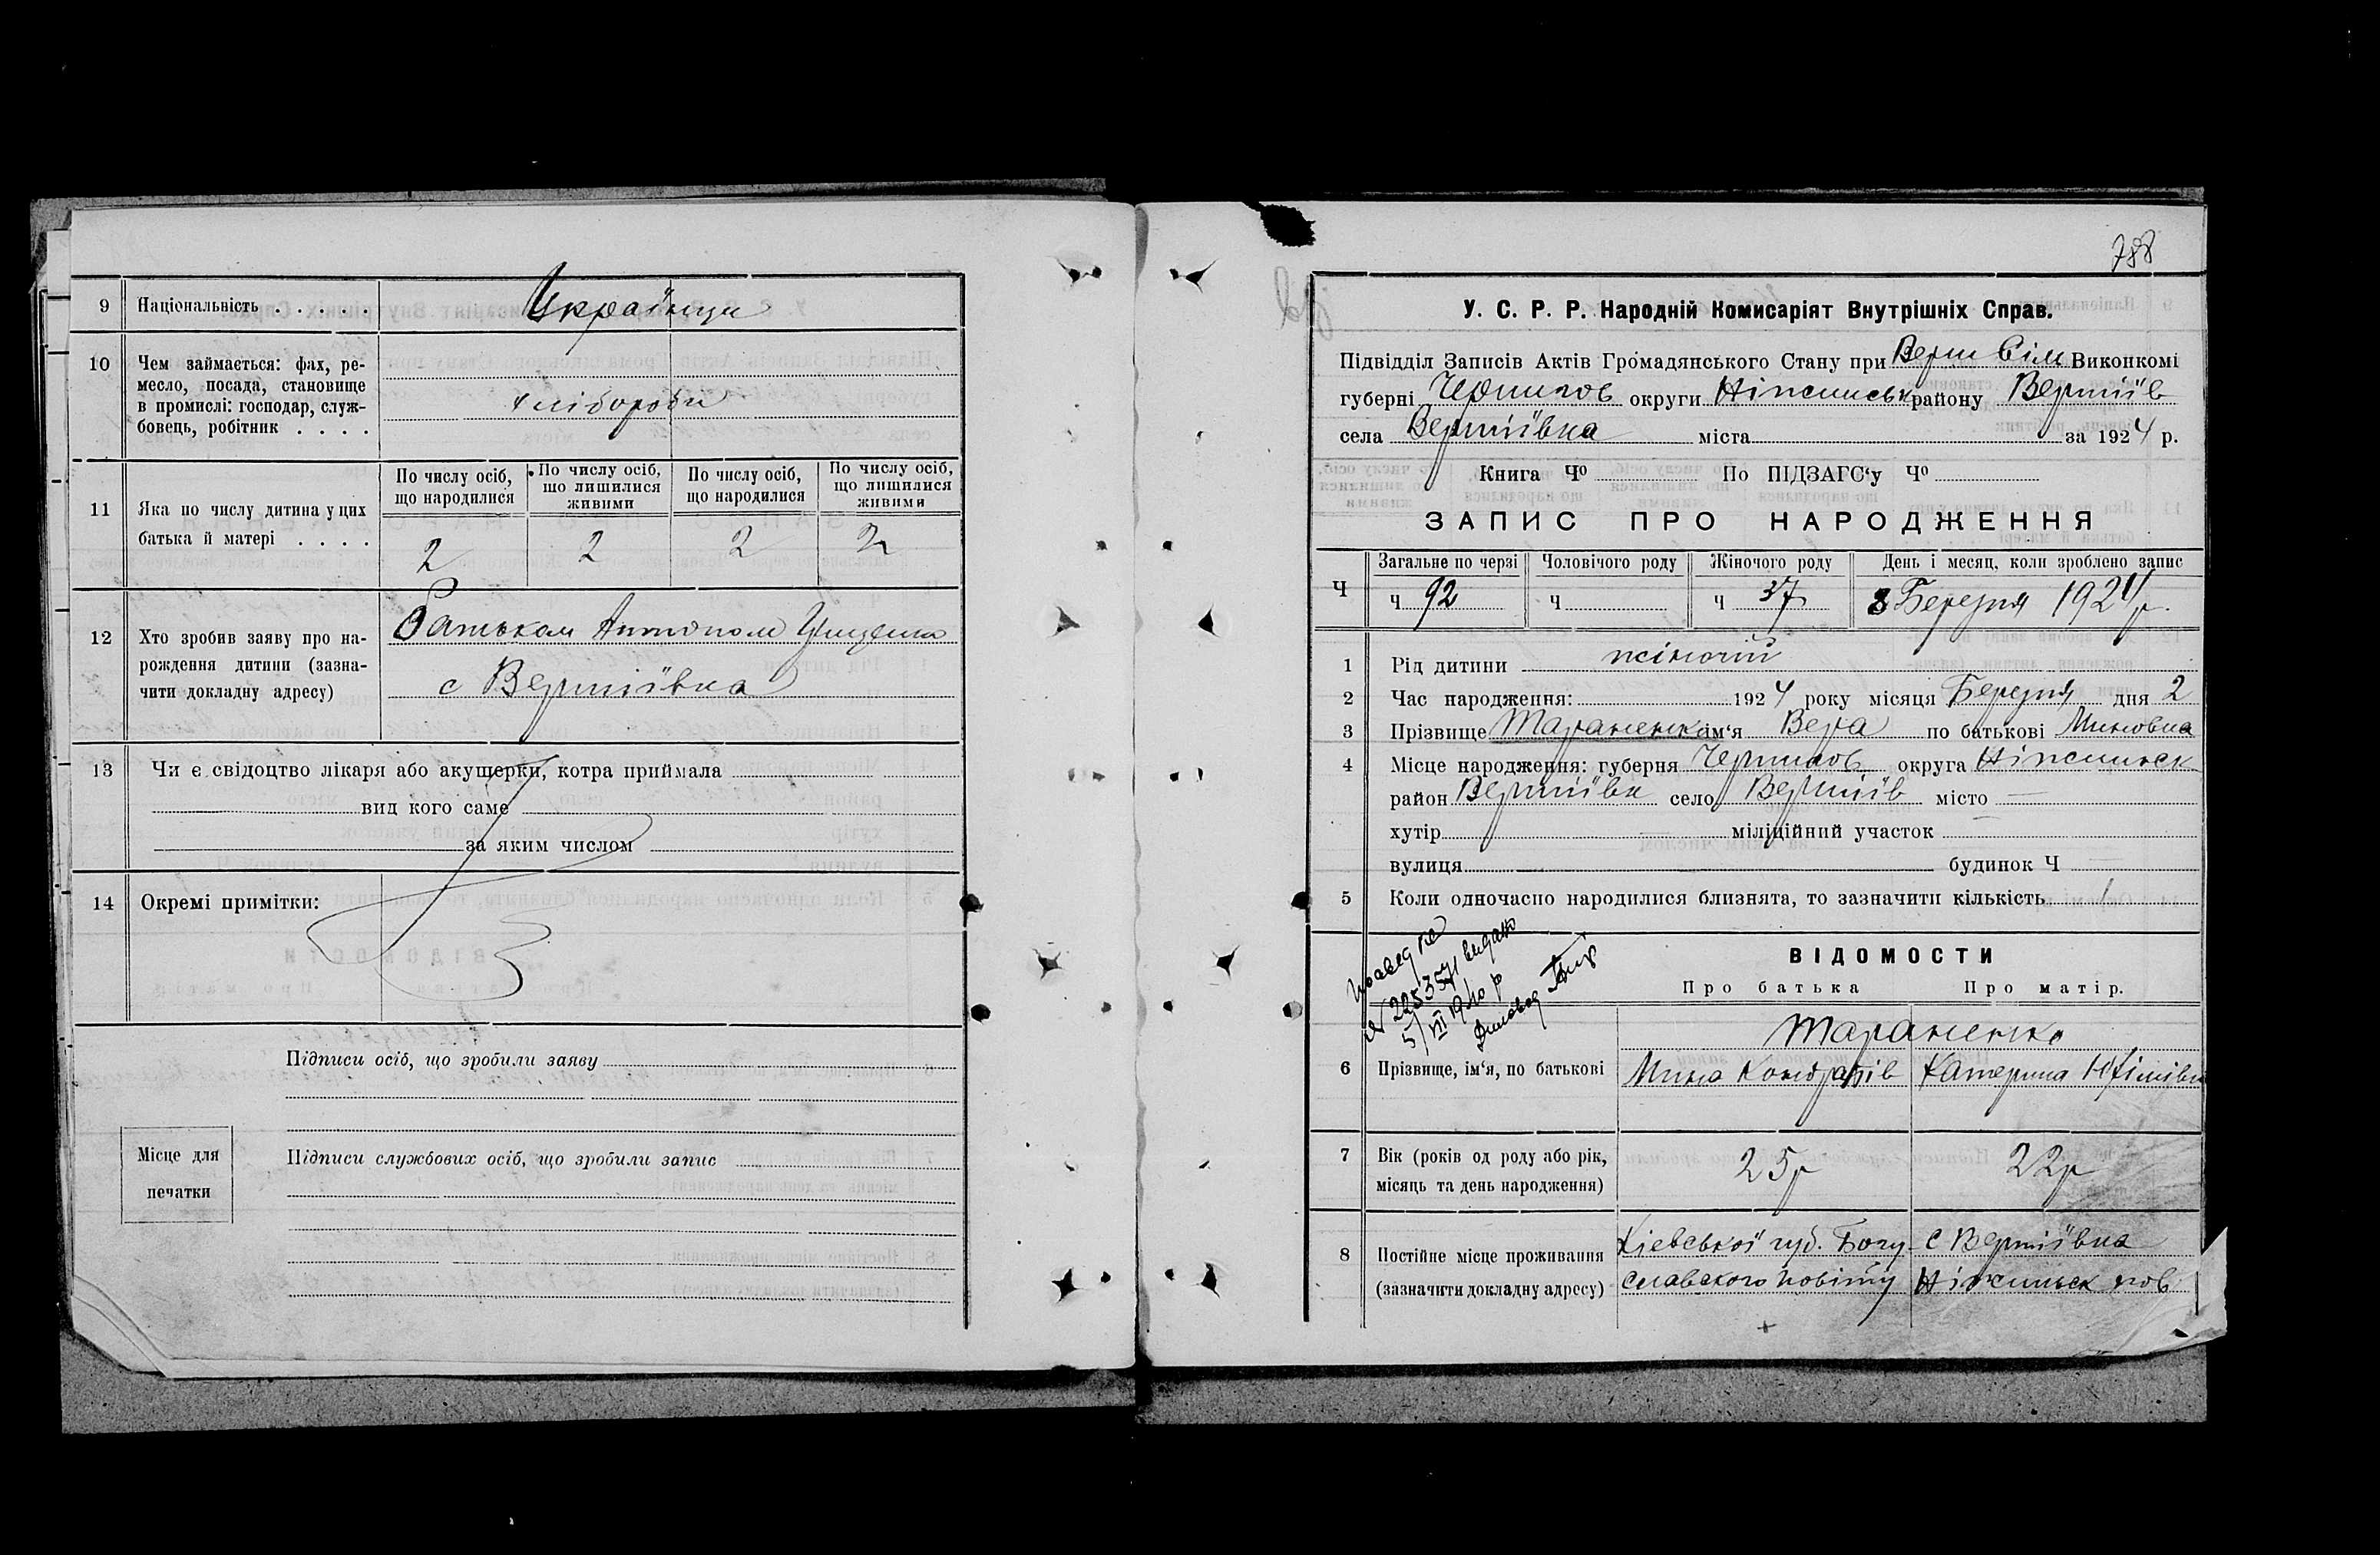 9 Національність . . . . . Українци
10 Чем займається: фах, ре-
месло, посада, становище
в промислі: господар, служ-
бовець, робітник . . . .
хлібороби
11 Яка по числу дитина у цих
батька й матері . . . .
По числу осіб, що народилися
По числу осіб, що лишилися живими
По числу осіб, що народилися
По числу осіб, що лишилися живими
2 2 2 2
12 Хто зробив заяву про на-
рождення дитини (зазна-
чити докладну адресу)
Батьком Антоном
с Вертіївка
13 Чи є свідоцтво лікаря або акущерки, котра приймала
вид кого саме
за яким числом
14 Окремі примітки:
Підписи осіб, що зробили заяву
Місце для
печатки
Підписи службових осіб, що зробили запис
788
У. С. Р. Р. Народній Комисаріят Внутрішніх Справ.
Підвідділ Записів Актів Громадянського Стану при Верт Сіль Виконкомі
губерні Чернигов округи Ніжинськ району Вертіїв
села Вертіївка міста за 1924 р.
Книга Ч⁰ По ПІДЗАГС‘у Ч⁰
ЗАПИС ПРО НАРОДЖЕННЯ
Ч
Загальне по черзі Чоловічого роду Жіночого роду День і месяц, коли зроблено запис
ч 92 ч ч 37 8 Березня 1924 р.
1 Рід дитини жіночий
2 Час народження: 1924 року місяця Березня дня 2
3 Прізвище Тараненко ім‘я Вера по батькові Миновна
4 Місце народження: губерня Чернигов округа Ніжинськ
район Вертіївк село Вертіїв місто —
хутір — міліційний участок —
вулиця — будинок Ч —
5 Коли одночасно народилися близнята, то зазначити кількість
№ 225357 видано
5/VII 1940 р
ВІДОМОСТИ
Про батька Про матір.
Тараненко
6 Прізвище, ім‘я, по батькові Мина Кондратів Катерина
7 Вік (років од роду або рік,
місяць та день народження)
25р 22р
8 Постійне місце проживання
(зазначити докладну адресу)
Кіевської губ. Богу-
славского повіту
с Вертіївка
Ніжинськ пов